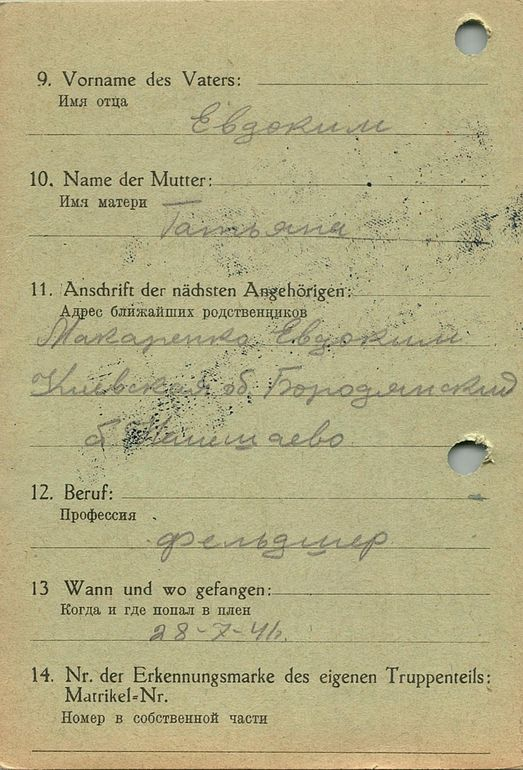 9. Vorname des Vaters:
Имя отца
Евдоким
10. Name der Mutter:
Имя матери
Татьяна
11. Anschrift der nächsten Angehörigen:
Адрес ближайших родственников
Макаренко Евдоким
Киевская об. Бородянский
12. Beruf:
Профессия
фельдшер
13 Wann und wo gefangen:
Когда и где попал в плен
28-7-41г.
14. Nr. der Erkennungsmarke des eigenen Truppenteils:
Matrikel-Nr.
Номер в собственной части